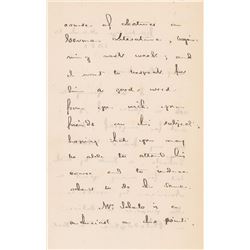 course of lectures on
German literature, begin-
ning next week; and
I want to bespeak for
him a good word
from you with your
friends on this subject,
hoping that you may
be able to attend his
course and to induce
others to do the same.
Mr. is an
enthusiast on this point.